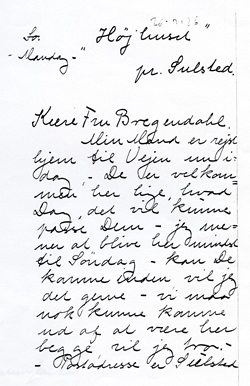 20-7-26
So.
"Højhuset"
- Mandag -
pr. Sulsted.
Kære Fru Bregendahl.
Min Mand er rejst
hjem til Vejen nu i
dag, - De er velkom=
men her lige, hvad
Dag, det vil kunne
passe Dem - jeg me=
ner at blive her mindst
til Søndag - kan De
komme inden vil jeg
det gerne - vi maa
nok kunne komme
ud af at være her
begge vil jeg tro. -
- Postadresse er Sulsted